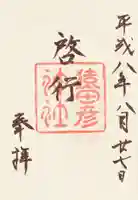 平成八年八月廿七日
啓行
猿田彦神社
奉拝